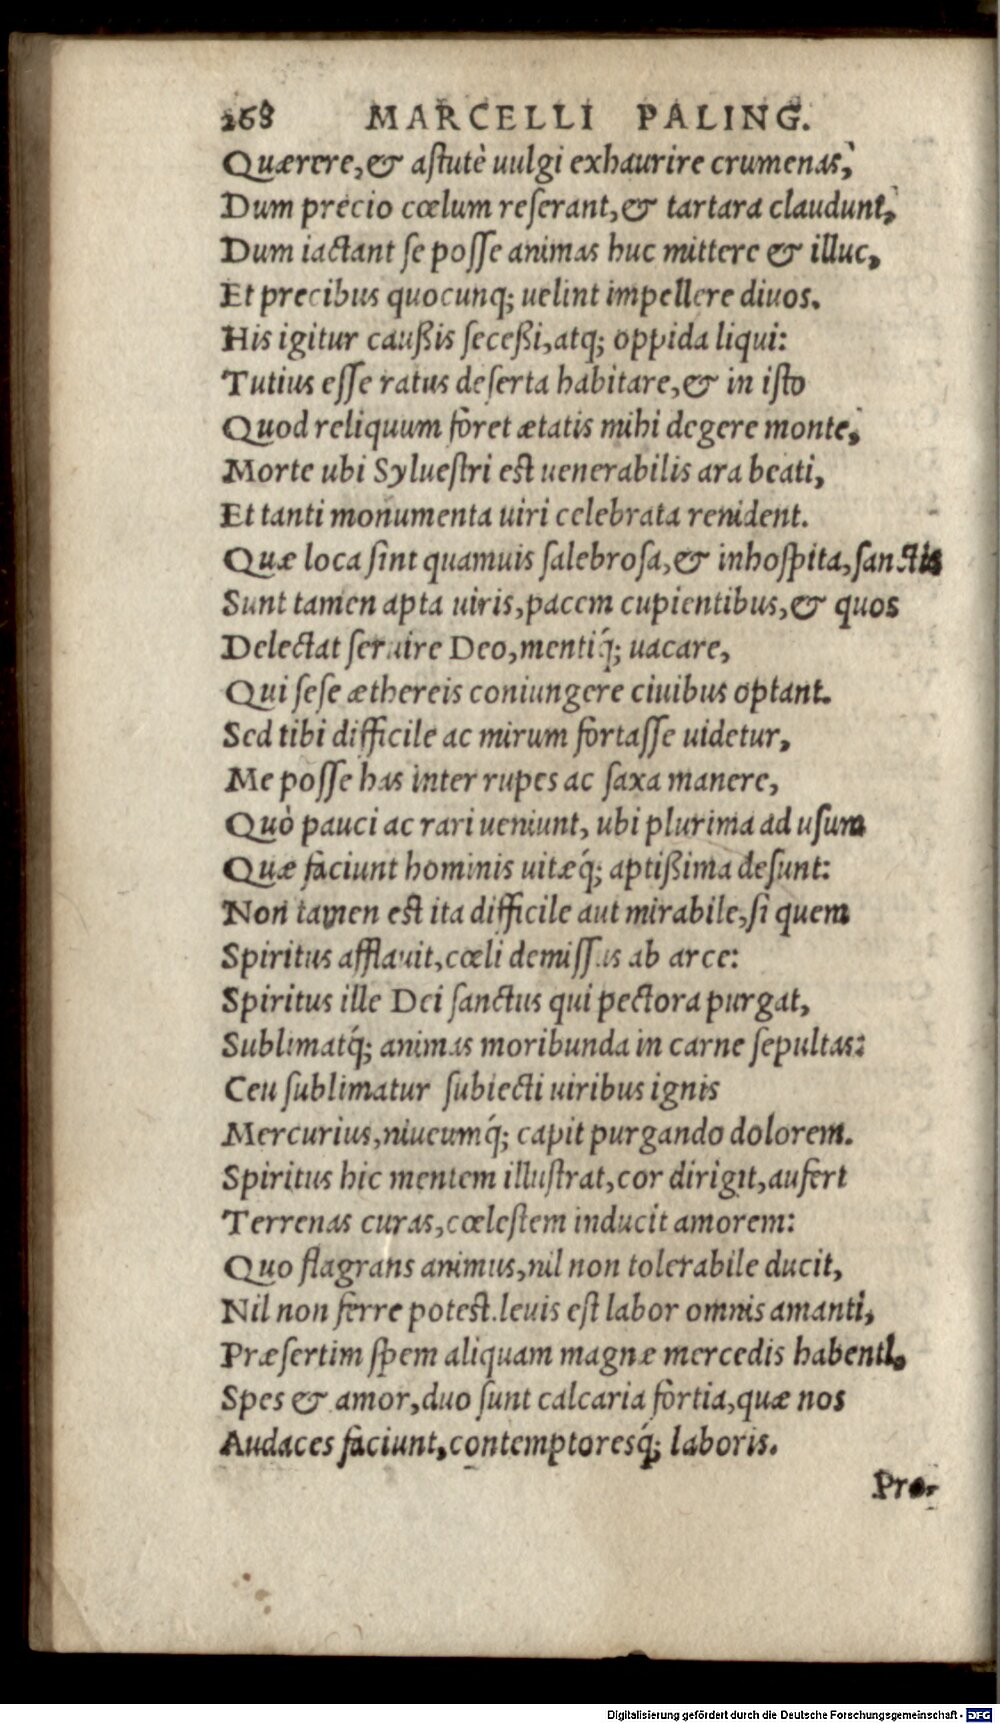 268 MARCELLI PALING.
Quærere, & astutè uulgi exhaurire crumenas,
Dum precio cœlum reserant, & tartara claudunt,
Dum iactant se posse animas huc mittere & illuc,
Et precibus quocunq; uelint impellere diuos.
His igitur caußis seceßi, atq; oppida liqui:
Tutius esse ratus deserta habitare, & in isto
Quod reliquum foret ætatis mihi degere monte,
Morte ubi Syluestri est uenerabilis ara beati,
Et tanti monumenta uiri celebrata renident.
Quæ loca sint quamuis salebrosa, & inhospita, sanctis
Sunt tamen apta uiris, pacem cupientibus, & quos
Delectat seruire Deo, mentiq́; uacare,
Qui sese æthereis coniungere ciuibus optant.
Sed tibi difficile ac mirum fortasse uidetur,
Me posse has inter rupes ac saxa manere,
Quò pauci ac rari ueniunt, ubi plurima ad usum
Quæ faciunt hominis uitæq́; aptißima desunt:
Non tamen est ita difficile aut mirabile, si quem
Spiritus afflauit, cœli demissus ab arce:
Spiritus ille Dei sanctus qui pectora purgat,
Sublimatq́; animas moribunda in carne sepultas:
Ceu sublimatur subiecti uiribus ignis
Mercurius, niueumq́; capit purgando dolorem.
Spiritus hic mentem illustrat, cor dirigit, aufert
Terrenas curas, cœlestem inducit amorem:
Quo flagrans animus, nil non tolerabile ducit,
Nil non ferre potest. leuis est labor omnis amanti,
Præsertim spem aliquam magnæ mercedis habenti.
Spes & amor, duo sunt calcaria fortia, quæ nos
Audaces faciunt, contemptoresq́; laboris.
Pro-
Digitalisierung gefördert durch die Deutsche Forschungsgemeinschaft - DFG